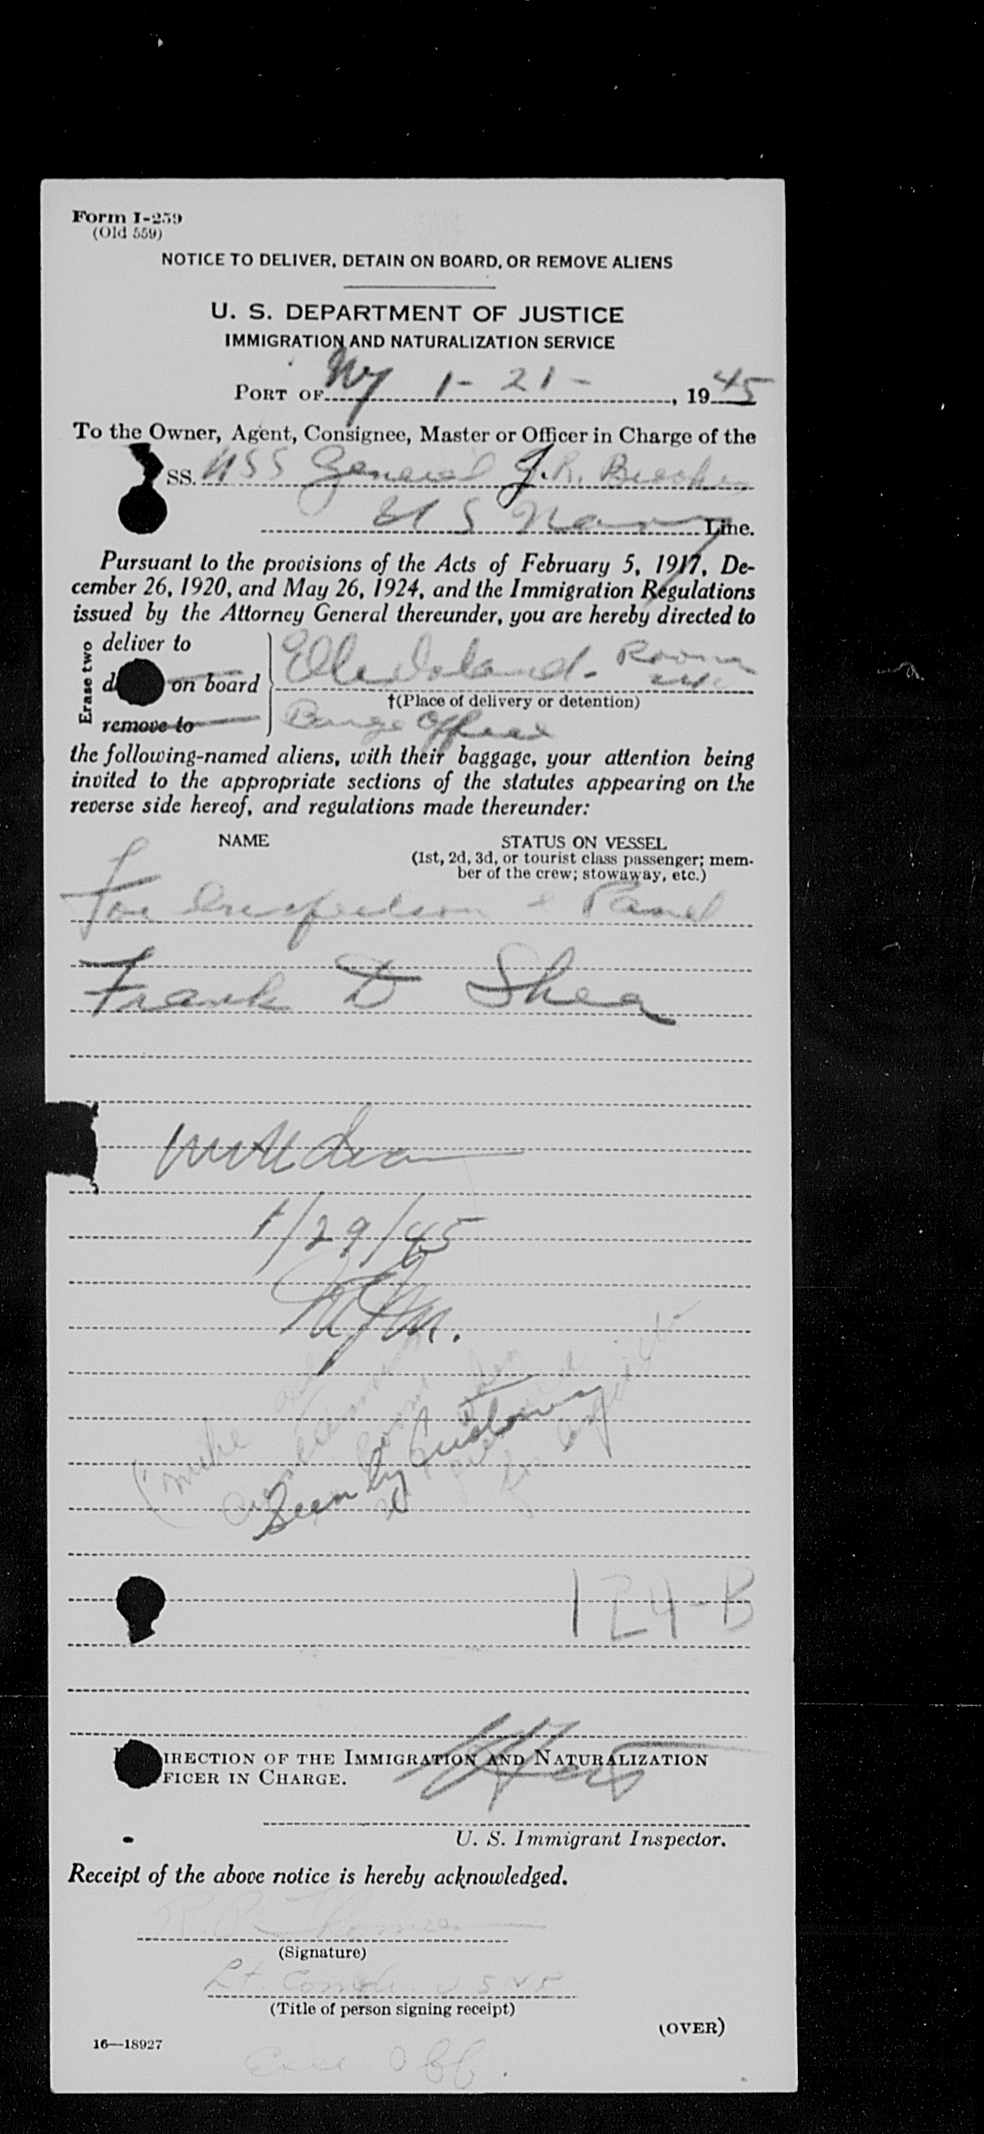 Form I-259
(Old 559)
NOTICE TO DELIVER, DETAIN ON BOARD, OR REMOVE ALIENS
U. S. DEPARTMENT OF JUSTICE
IMMIGRATION AND NATURALIZATION SERVICE
PORT OF NY 1-21-, 1945
To the Owner, Agent, Consignee, Master or Officer in Charge of the
SS. USS General J.R.
U S Navy Line.
Pursuant to the provisions of the Acts of February 5, 1917, De-
cember 26, 1920, and May 26, 1924, and the Immigration Regulations
issued by the Attorney General thereunder, you are hereby directed to
Erase two
deliver to
on board
remove to
Ellis Island - Room
†(Place of delivery or detention)
Barge Office
the following-named aliens, with their baggage, your attention being
invited to the appropriate sections of the statutes appearing on the
reverse side hereof, and regulations made thereunder:
NAME STATUS ON VESSEL
(1st, 2d, 3d, or tourist class passenger; mem-
ber of the crew; stowaway, etc.)
For Inspection & Panel
Frank D Shea
1/29/45
Seen by Customs
124-B
IRECTION OF THE IMMIGRATION AND NATURALIZATION
FICER IN CHARGE.
U. S. Immigrant Inspector.
Receipt of the above notice is hereby acknowledged.
(Signature)
Lt. Comdr. USNR
(Title of person signing receipt)
(OVER)
16—18927
Exec Off.